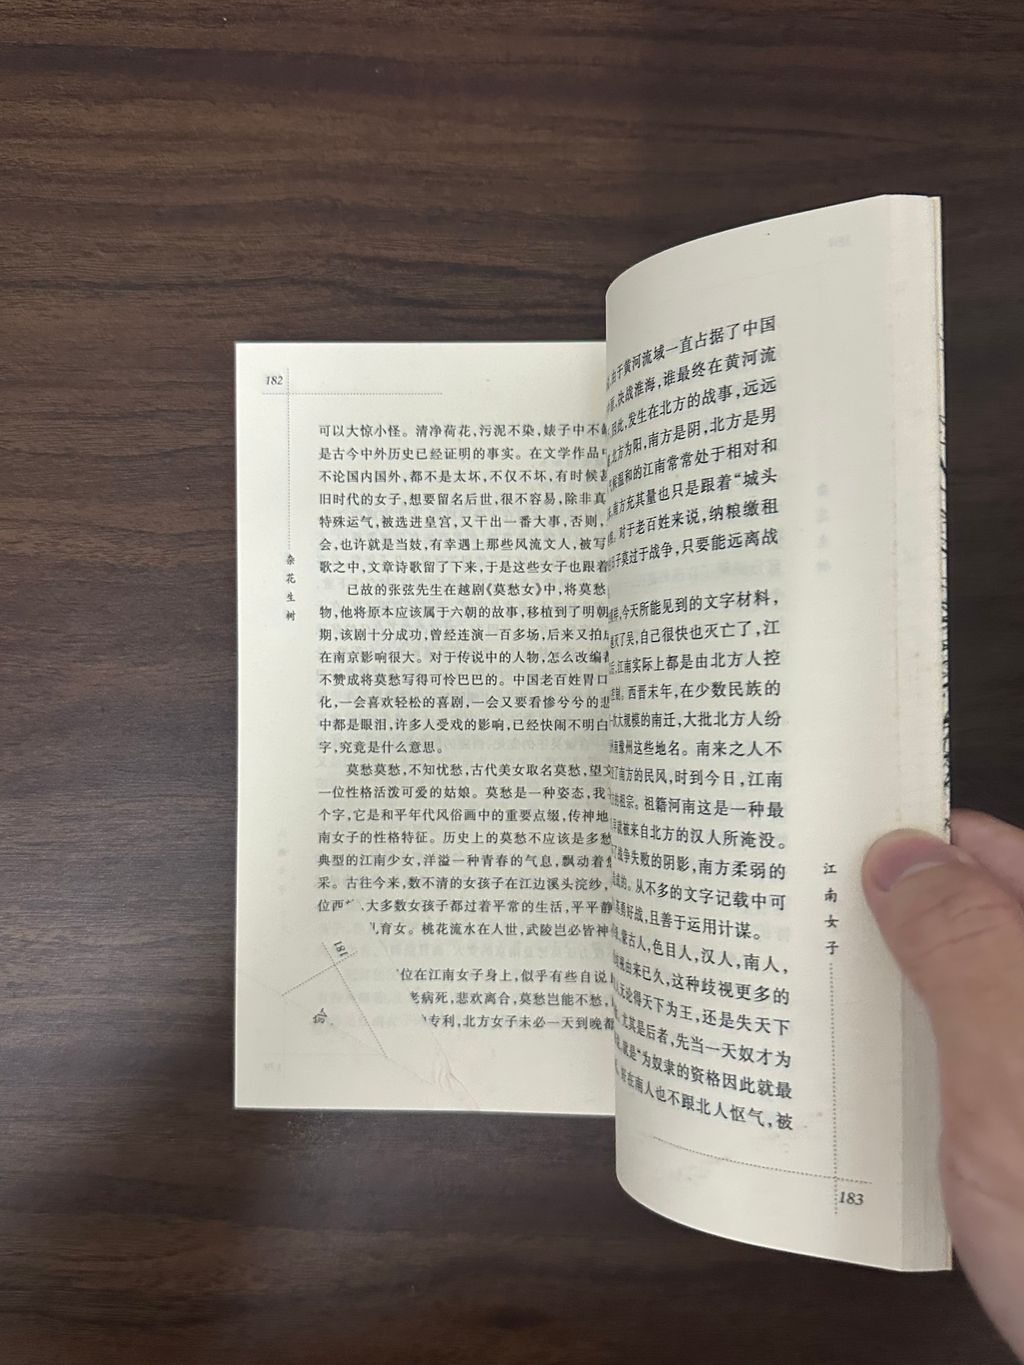 182
可以大惊小怪。清净荷花,污泥不染,婊子中不
是古今中外历史已经证明的事实。在文学作品
不论国内国外,都不是太坏,不仅不坏,有时候
旧时代的女子,想要留名后世,很不容易,除非真
特殊运气,被选进皇宫,又干出一番大事,否则,
会,也许就是当妓,有幸遇上那些风流文人,被写
歌之中,文章诗歌留了下来,于是这些女子也跟着
已故的张弦先生在越剧《莫愁女》中,将莫愁
物,他将原本应该属于六朝的故事,移植到了明朝
期,该剧十分成功,曾经连演一百多场,后来又拍
在南京影响很大。对于传说中的人物,怎么改编
不赞成将莫愁写得可怜巴巴的。中国老百姓胃口
化,一会喜欢轻松的喜剧,一会又要看惨兮兮的
中都是眼泪,许多人受戏的影响,已经快闹不明白
字,究竟是什么意思。
莫愁莫愁,不知忧愁,古代美女取名莫愁,望
一位性格活泼可爱的姑娘。莫愁是一种姿态,我
个字,它是和平年代风俗画中的重要点缀,传神地
南女子的性格特征。历史上的莫愁不应该是多愁
典型的江南少女,洋溢一种青春的气息,飘动着
采。古往今来,数不清的女孩子在江边溪头浣纱,
位西 大多数女孩子都过着平常的生活,平平静
儿育女。桃花流水在人世,武陵岂必皆神
位在江南女子身上,似乎有些自说
老病死,悲欢离合,莫愁岂能不愁,
专利,北方女子未必一天到晚都
杂花生树
181
由于黄河流域一直占据了中国
决战淮海,谁最终在黄河流
因此,发生在北方的战事,远远
北方为阳,南方是阴,北方是男
候温和的江南常常处于相对和
南方充其量也只是跟着“城头
对于老百姓来说,纳粮缴租
日子莫过于战争,只要能远离战
今天所能见到的文字材料,
灭了吴,自己很快也灭亡了,江
后,江南实际上都是由北方人控
制。西晋末年,在少数民族的
大规模的南迁,大批北方人纷
南豫州这些地名。南来之人不
了南方的民风,时到今日,江南
的祖宗。祖籍河南这是一种最
就被来自北方的汉人所淹没。
了战争失败的阴影,南方柔弱的
成的。从不多的文字记载中可
英勇好战,且善于运用计谋。
蒙古人,色目人,汉人,南人,
视由来已久,这种歧视更多的
无论得天下为王,还是失天下
尤其是后者,先当一天奴才为
就是“为奴隶的资格因此就最
在南人也不跟北人怄气,被
江南女子
183